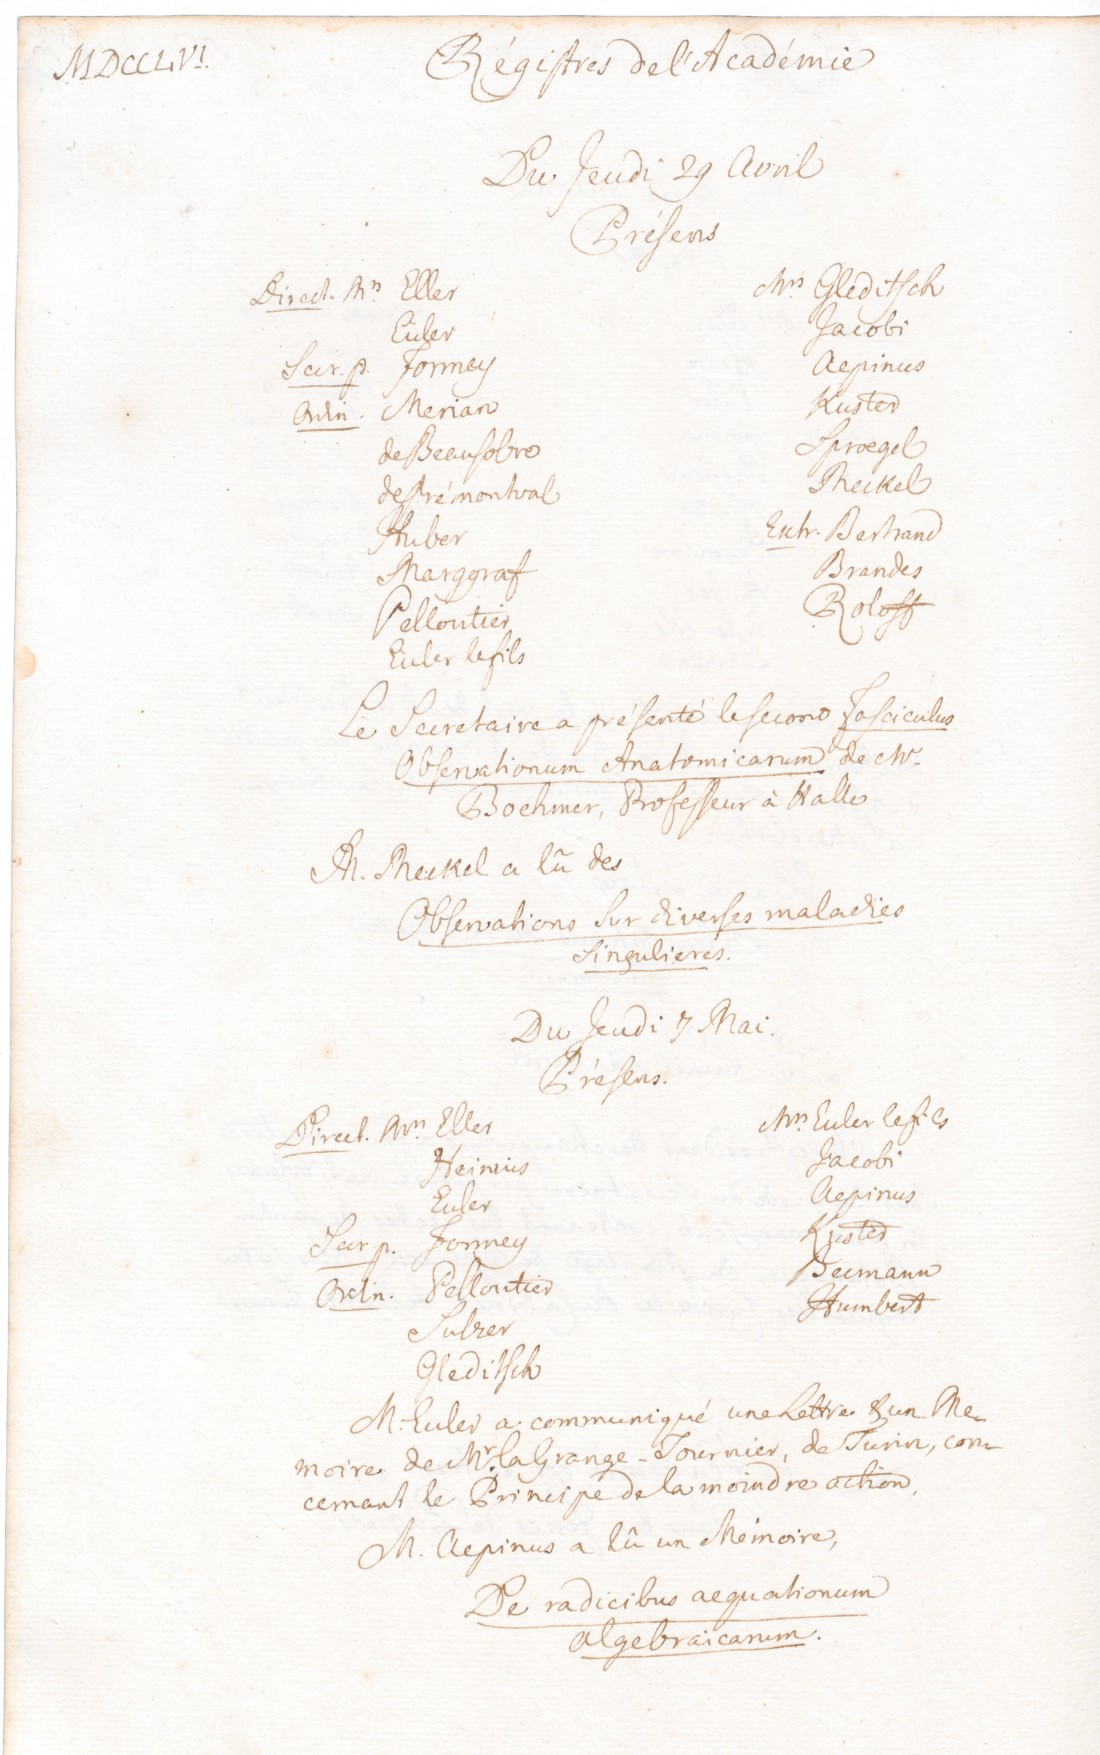 MDCCLVI.
Régistres de l'Académie
Du Jeudi 29 Avril
Présens
Direct. Mrs Eller
Euler
Secr. p. Formey
Ordin. Merian
de Beausobre
de Prémontval
Huber
Marggraf
Pelloutier
Euler le fils
Mrs Gleditsch
Jacobi
Aepinus
Kuster
Sproegel
Meckel
Extr. Bertrand
Brandes
Roloff
Le Secretaire a présenté le second Fasciculus
Observationum Anatomicarum de Mr.
Boehmer, Professeur à Halle
M. Meckel a lû des
Observations sur diverses maladies
singulieres.
Du Jeudi 7 Mai.
Présens.
Direct. Mrs Eller
Heinius
Euler
Secr p. Formey
Ordin. Pelloutier
Sulzer
Gleditsch
Mrs Euler le fils
Jacobi
Aepinus
Kuster
Becmann
Humbert
M. Euler a communiqué une Lettre & un Me-
moire de Mr. la Grange-Tournier, de Turin, con-
cernant le Principe de la moindre action.
M. Aepinus a lû un Mémoire,
De radicibus aequationum
algebraicarum.